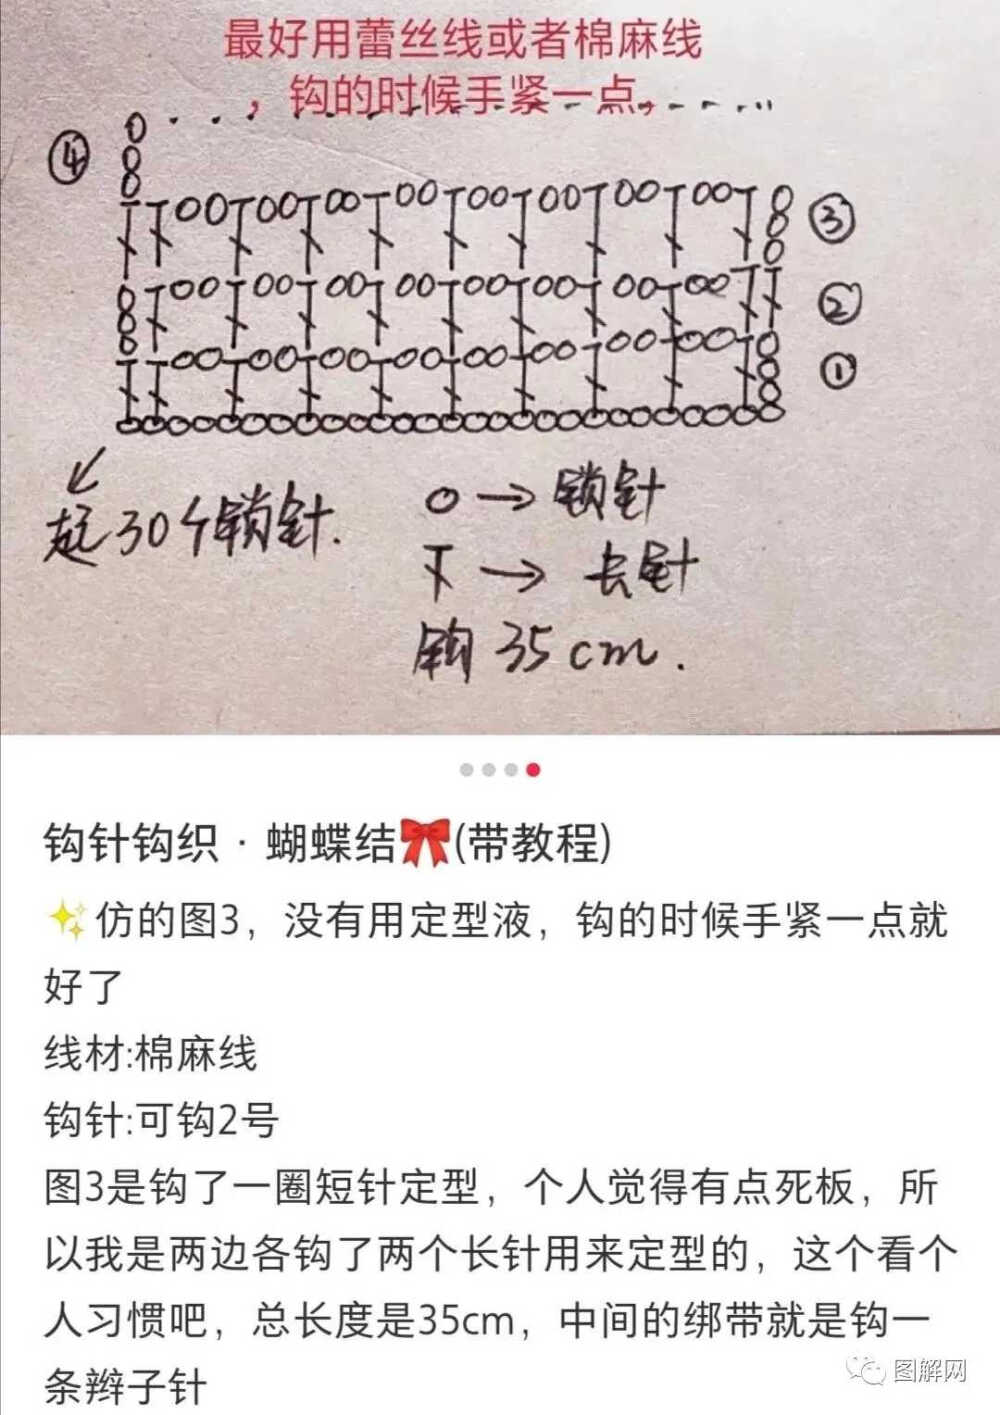 最好用蕾丝线或者棉麻线
，钩的时候手紧一点，
④
③
②
①
起30个锁针.
o → 锁针
→ 长针
钩 35cm.
钩针钩织·蝴蝶结🎀(带教程)
✨仿的图3，没有用定型液，钩的时候手紧一点就
好了
线材:棉麻线
钩针:可钩2号
图3是钩了一圈短针定型，个人觉得有点死板，所
以我是两边各钩了两个长针用来定型的，这个看个
人习惯吧，总长度是35cm，中间的绑带就是钩一
条辫子针
图解网